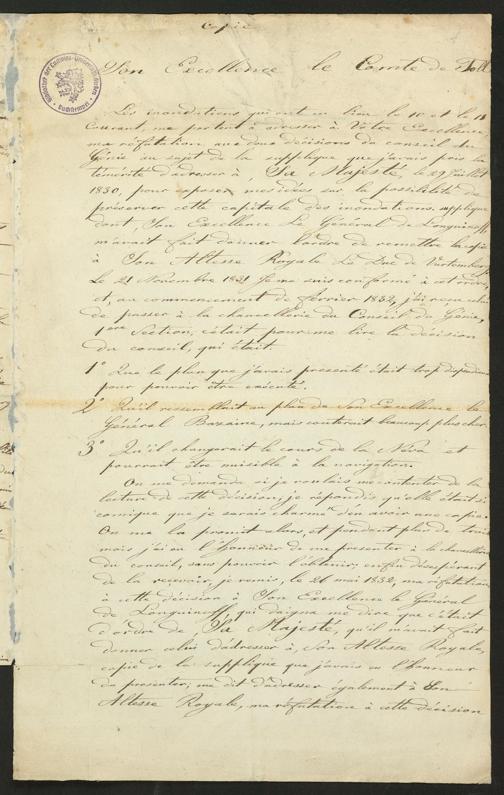 Copie
Son Excellence le Comte de Toll
Les inondations qui ont eu lieu le 10 et le 18
Courant, me portent à adresser à Votre Excellence,
ma réfutation aux deux décisions du conseil du
Génie au sujet de la supplique que j'avais pris la
témérité d'adresser à Sa Majesté, le 29 Juillet
1830, pour exposer mes idées sur la possibilité de
préserver cette capitale des inondations. supplique
dont, Son Excellence Le Général de Longuinoff
m'avait fait donner l'ordre de remettre la copie
à Son Altesse Royale Le Duc de Virtemberg
Le 21 Novembre 1831 Je me suis conformé à cet ordre,
et, au commencement de février 1832, j'ai reçu celui
de passer à la chancellerie du Conseil du Génie,
1ère Section, c'était pour me lire la décision
du conseil, qui était.
1° Que le plan que j'avais présenté était trop dispendieux
pour pouvoir être exécuté.
2° Qu'il ressemblait au plan de Son Excellence le
Général Bazaine, mais couterait beaucoup plus cher.
3° Qu'il changerait le cours de la Néva et
pourrait être nuisible à la navigation.
On me demanda si je voulais me contenter de la
lecture de cette décision, je répondis qu'elle était si
comique que je serais charmé d'en avoir une copie.
On me la promit alors, et pendant plus de trois
mois j'ai eu l'honneur de me presenter à la chancellerie
du conseil, sans pouvoir l'obtenir, enfin désespérant
de la recevoir, je remis, le 26 mai 1832, ma réfutation
à cette décision à Son Excellence le Général
de Longuinoff, qui daigna me dire que c'était
d'ordre de Sa Majesté, qu'il m'avait fait
donner celui d'adresser à Son Altesse Royale,
copie de la supplique que j'avais eu l'honneur
de presenter; me dit d'adresser également à Son
Altesse Royale, ma réfutation à cette décision